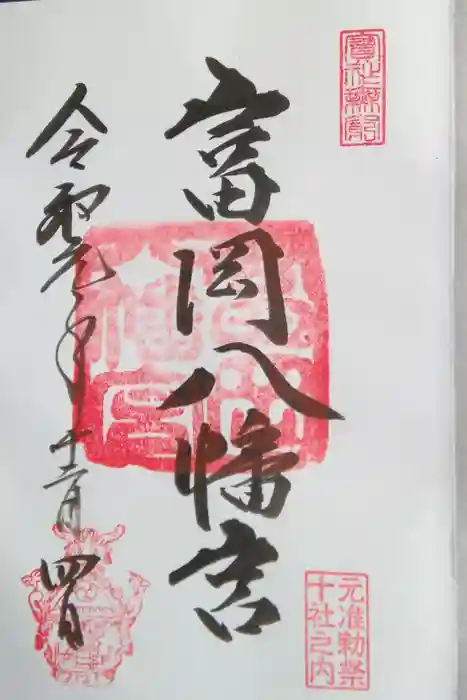 富岡八幡宮
令和元年十二月四日
元准勅祭
十社之内